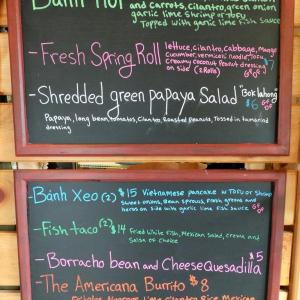 Banh Mi
and carrots, cilantro, green onion
garlic lime shrimp or TOFU
Topped with garlic lime Fish Sauce
-Fresh Spring Roll
lettuce, cilantro, cabbage, mango
cucumber, vermicelli noodle, TOFU
creamy coconut Peanut dressing
on side (2 Rolls)
-Shredded green papaya Salad
"Bok lahong"
Papaya, long bean, tomatos, Cilantro, Roasted peanuts, Tossed in tamarind
dressing
-Bánh Xeo (2) $15 Vietnamese pancake w/TOFU or Shrimp
Sweet onions, Bean sprouts, Fresh greens and
herbs on side with garlic lime Fish Sauce
-Fish taco (2) $14 Fried White Fish, Mexican Salad, crema and
Salsa of Choice
-Borracho bean and Cheese Quesadilla $5
-The Americana Burrito $8
Cilantro Rice Mexican